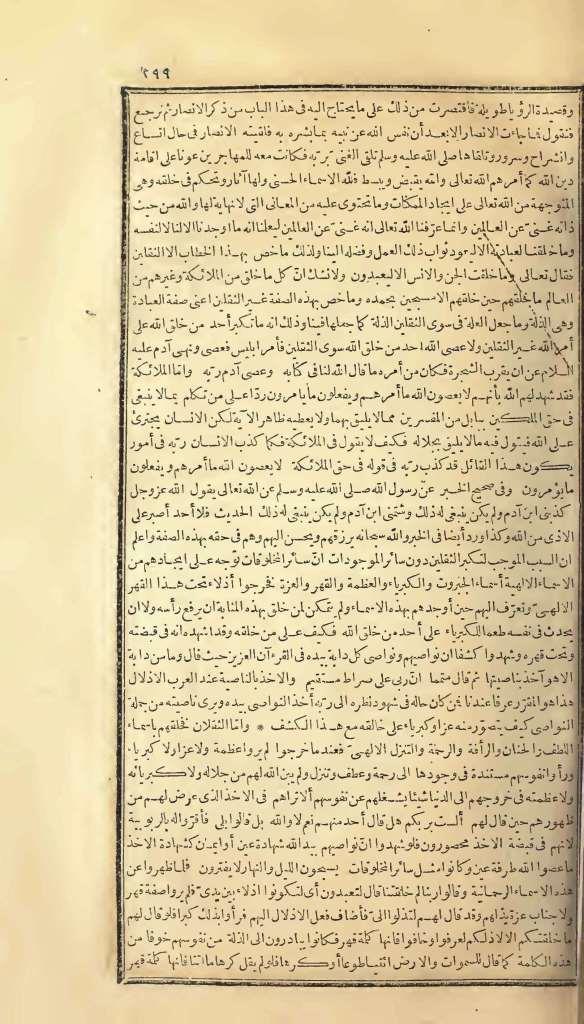 ٢٩٩
وقصيدة الرؤيا طويلة فاقتصرت من ذلك على ما يحتاج اليه فى هذا الباب من ذكر الانصار ثم نرجع
فنقول فما جاءت الانصار الا بعد أن نفس الله عن نبيه بما بشره به فلقيته الانصار فى حال اتساع
وانشراح وسرور وتلقاها صلى الله عليه وسلم تلقى الغنى بربه فكانت معه للمهاجرين عونا على اقامة
دين الله كما أمرهم الله تعالى والله يقبض ويبسط فلله الاسماء الحسنى ولها آثار وتحكم فى خلقه وهى
المتوجهة من الله تعالى على ايجاد الممكنات وما تحتوى عليه من المعانى التى لا نهاية لها والله من حيث
ذاته غنى عن العالمين وانما عرفنا الله تعالى انه غنى عن العالمين ليعلمنا انه ما أوجدنا الا لنا لا لنفسه
وما خلقنا لعبادته الا ليعود ثواب ذلك العمل وفضله الينا ولذلك ما خص بهذا الخطاب الا الثقلين
فقال تعالى وما خلقت الجن والانس الا ليعبدون ولا نشك ان كل ما خلق من الملائكة وغيرهم من
العالم ما خلقهم حين خلقهم الا مسبحين بحمده وما خص بهذه الصفة غير الثقلين اعنى صفة العبادة
وهى الذلة وما جعل العلة فى سوى الثقلين الذلة كما جعلها فينا وذلك انه ما تكبر أحد من خلق الله على
أمر الله غير الثقلين ولا عصى الله احد من خلق الله سوى الثقلين فأمر ابليس فعصى ونهى آدم عليه
السلام عن ان يقرب الشجرة فكان من أمره ما قال الله لنا فى كتابه وعصى آدم ربه واما الملائكة
فقد شهد لهم الله بأنهم لا يعصون الله ما أمرهم ويفعلون ما يؤمرون ردا على من تكلم بما لا ينبغى
فى حق الملكين ببابل من المفسرين مما لا يليق بهما ولا يعطيه ظاهر الآية لكن الانسان يجترئ
على الله فيقول فيه ما لا يليق بجلاله فكيف لا يقول فى الملائكة فكما كذب الانسان ربه فى أمور
يكون هذا القائل قد كذب ربه فى قوله فى حق الملائكة لا يعصون الله ما أمرهم ويفعلون
ما يؤمرون وفى صحيح الخبر عن رسول الله صلى الله عليه وسلم عن الله تعالى يقول الله عز وجل
كذبنى ابن آدم ولم يكن ينبغى له ذلك وشتمنى ابن آدم ولم يكن ينبغى له ذلك الحديث فلا أحد أصبر على
الاذى من الله وكذا ورد أيضا فى الخبر والله سبحانه يرزقهم ويحسن اليهم وهم فى حقه بهذه الصفة واعلم
ان السبب الموجب لتكبر الثقلين دون سائر الموجودات انّ سائر المخلوقات توجه على ايجادهم من
الاسماء الالهية أسماء الجبروت والكبرياء والعظمة والقهر والعزة فخرجوا أذلاء تحت هذا القهر
الالهى وتعرف اليهم حين أوجدهم بهذه الاسماء ولم يتمكن لمن خلق بهذه المثابة ان يرفع رأسه ولا ان
يجد فى نفسه طعما للكبرياء على أحد من خلق الله فكيف على من خلقه وقد اشهده انه فى قبضته
وتحت قهره وشهدوا كشفا ان نواصيهم ونواصى كل دابة بيده فى القرءآن العزيز حيث قال وما من دابة
الا هو آخذ بناصيتها ثم قال متمما ان ربى على صراط مستقيم والاخذ بالناصية عند العرب الاذلال
هذا هو المقرر عرفا عندنا فمن كان حاله فى شهود نظره الى ربه أخذ النواصى بيده ويرى ناصيته من جملة
النواصى كيف يتصور منه عز أو كبرياء على خالقه مع هذا الكشف * واما الثقلان فخلقهم باسماء
اللطف والحنان والرأفة والرحمة والتنزل الالهى فعند ما خرجوا لم يروا عظمة ولا عزا ولا كبرياء
ورأوا نفوسهم مستندة فى وجودها الى رحمة وعطف وتنزل ولم يبد الله لهم من جلاله ولا كبريائه
ولا عظمته فى خروجهم الى الدنيا شيئا يشغلهم عن نفوسهم ألا تراهم فى الاخذ الذى عرض لهم من
ظهورهم حين قال لهم ألست بربكم هل قال أحد منهم نعم لا والله بل قالوا بلى فأقروا له بالربوبية
لانهم فى قبضة الاخذ محصورون فلو شهدوا ان نواصيهم بيد الله شهادة عين أو ايمان كشهادة الاخذ
ما عصوا الله طرفة عين وكانوا مثل سائر المخلوقات يسبحون الليل والنهار لا يفترون فلما ظهروا عن
هذه الاسماء الرحمانية وقالوا ربنا لم خلقتنا قال لتعبدون أى لتكونوا اذلاء بين يدىّ فلم يروا صفة قهر
ولا جناب عزة يذلهم وقد قال لهم لتذلوا الىّ فأضاف فعل الاذلال اليهم فزأوا بذلك كبرا فلو قال لهم
ما خلقتكم الا لاذلكم لعرفوا وخافوا فانها كلمة قهر فكانوا يبادرون الى الذلة من نفوسهم خوفا من
هذه الكلمة كما قال للسموات والارض ائتيا طوعا أو كرها فلو لم يقل كرها ما اتتا فانها كلمة قهر